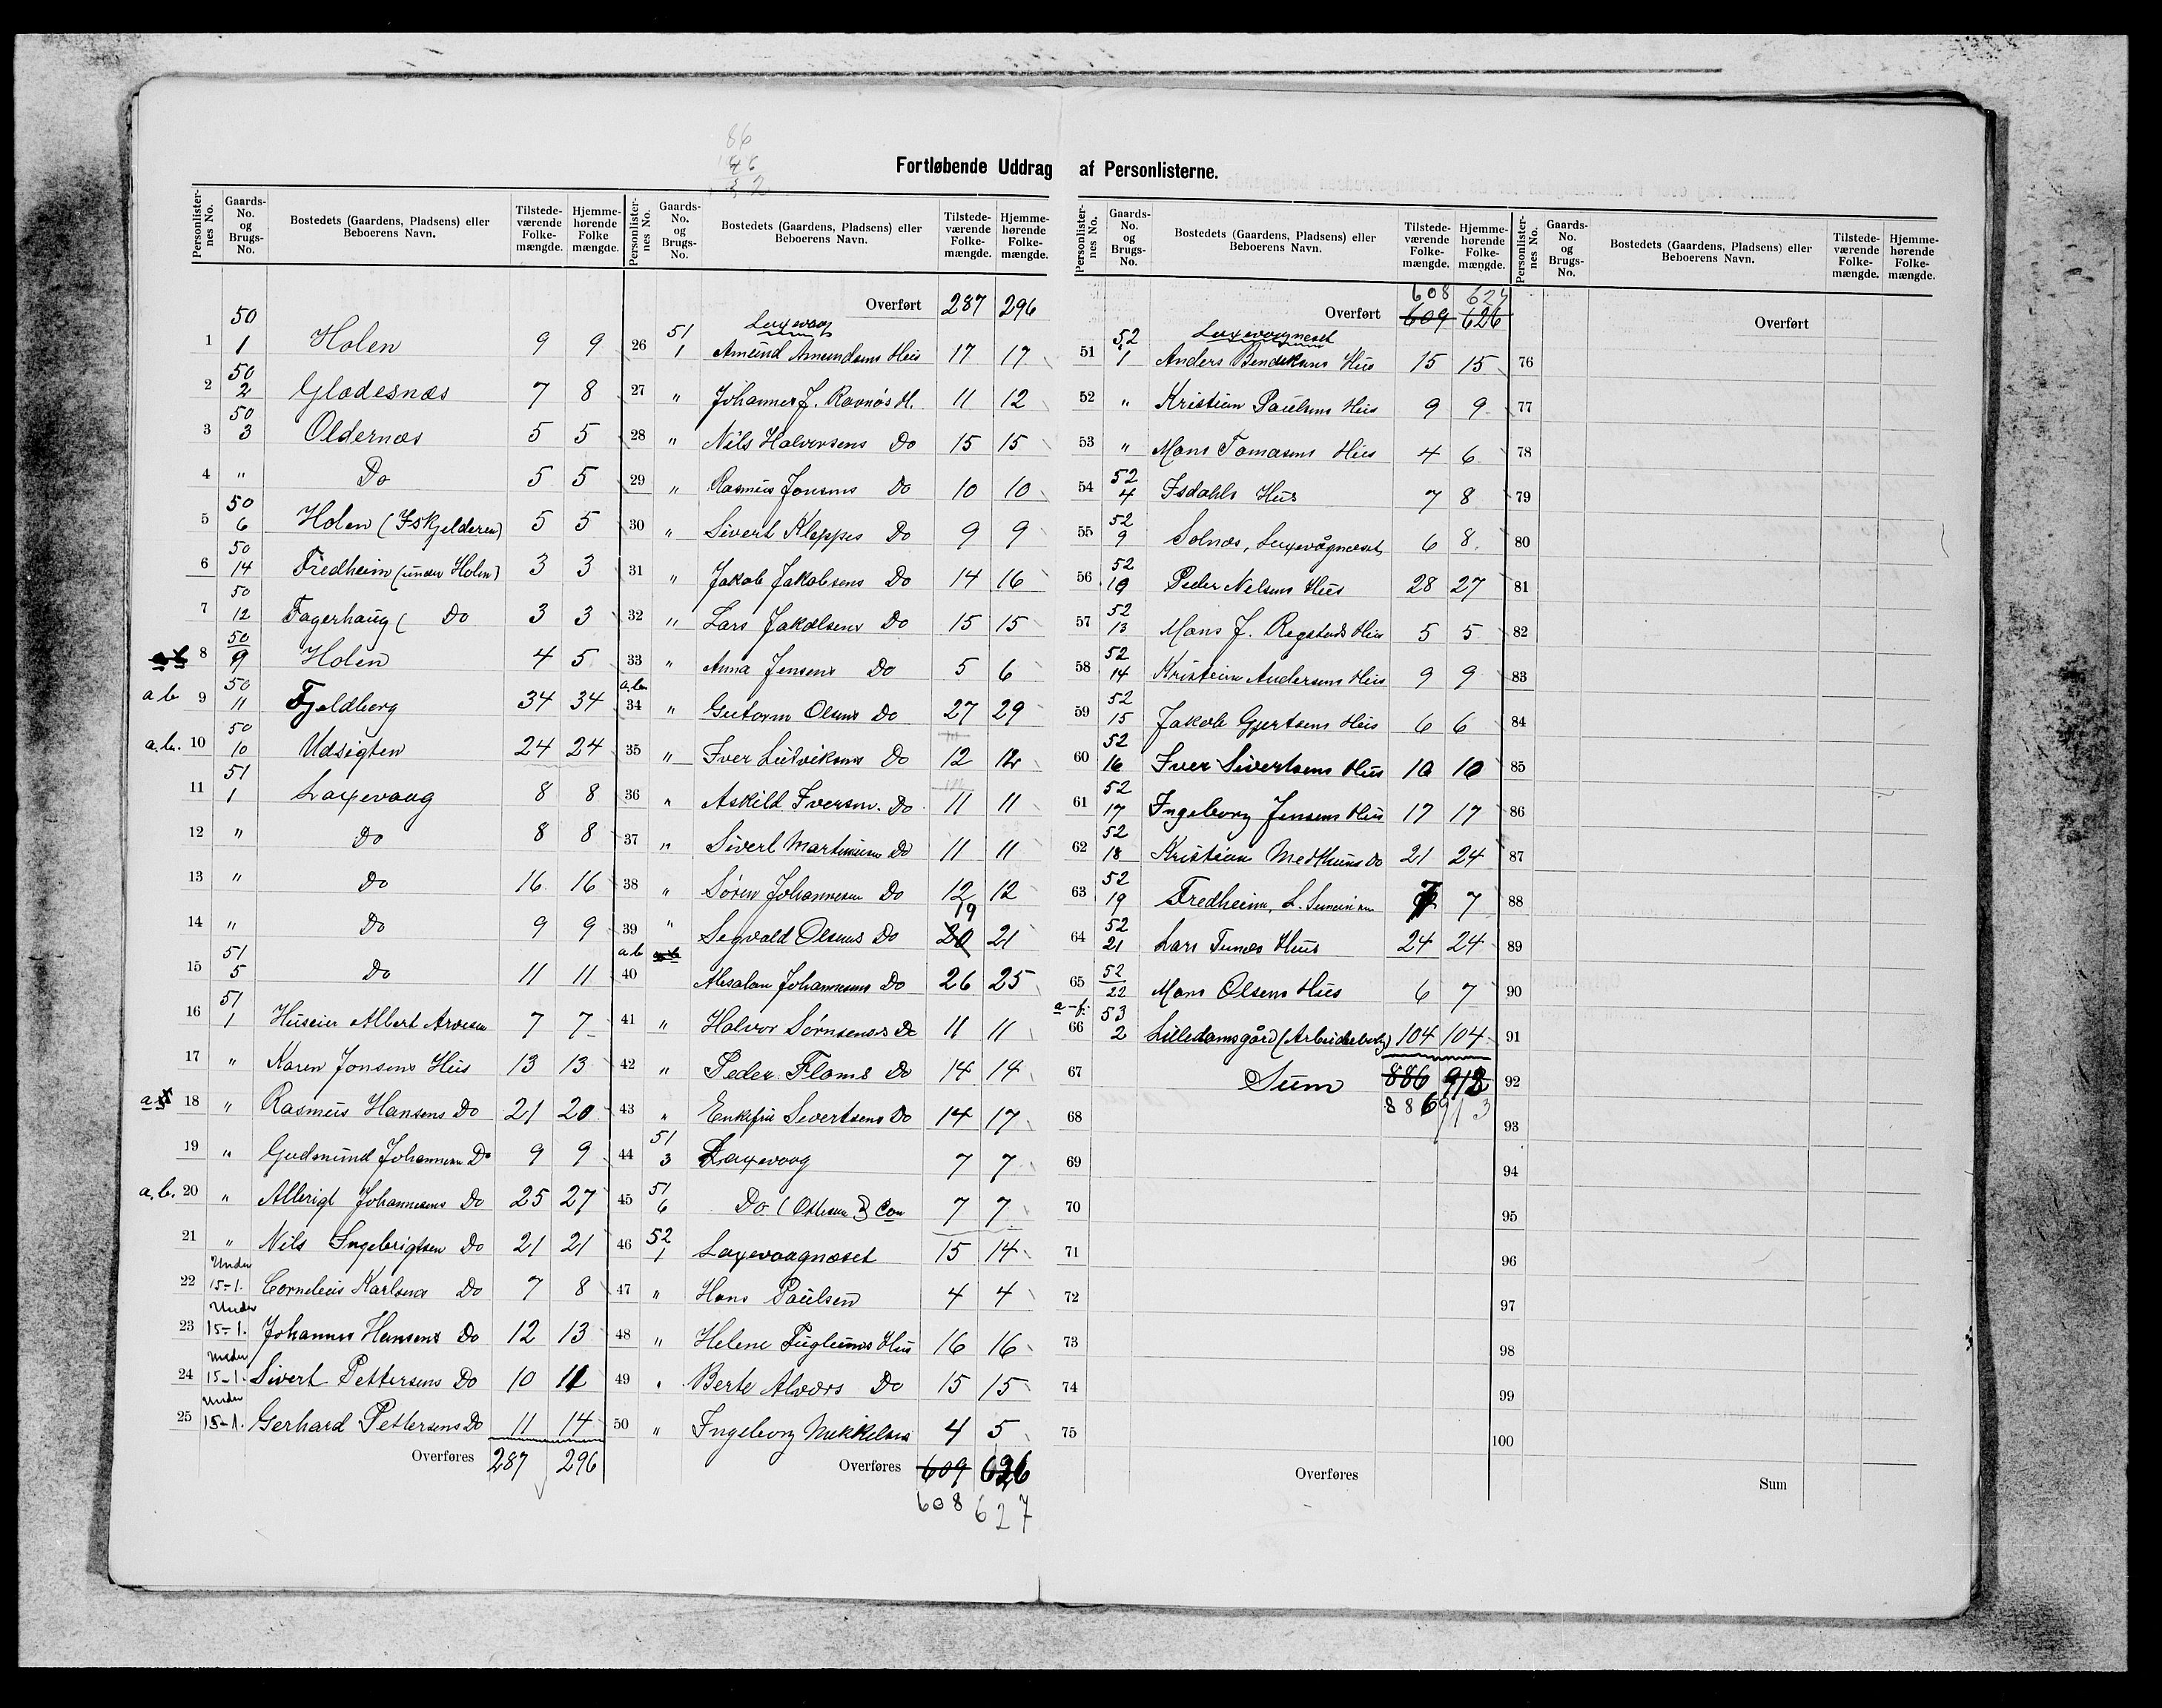 Fortløbende Uddrag af Personlisterne.
Personlisternes No. Gaards-No. og Brugs-No. Bostedets (Gaardens, Pladsens) eller Beboerens Navn. Tilstedeværende Folkemængde. Hjemmehørende Folkemængde.
1 50 1 Holen 9 9
2 50 2 Gladesnæs 7 8
3 50 3 Oldernæs 5 5
4 " Do 5 5
5 50 6 Holen (Iskjelderen) 5 5
6 50 14 Fredheim (under Holen) 3 3
7 50 12 Fagerhaug ( Do 3 3
8 50 9 Holen 4 5
a b 9 50 11 Fjeldberg 34 34
a.b. 10 50 10 Udsigten 24 24
11 51 1 Laxevaag 8 8
12 " Do 8 8
13 " Do 16 16
14 " Do 9 9
15 51 5 Do 11 11
16 51 1 Huseier Albert Arvesen 7 7
17 " Karen Jonsens Hus 13 13
18 " Rasmus Hansens Do 21 20
19 " Gudmund Johannesen Do 9 9
a.b. 20 " Albrigt Johannesens Do 25 27
21 " Nils Ingebrigtsen Do 21 21
22 Under 15-1. Cornelius Karlsens Do 7 8
23 Under 15-1. Johannes Hansens Do 12 13
24 Under 15-1. Sivert Pettersens Do 10 11
25 Under 15-1. Gerhard Pettersens Do 11 14
Overføres 287 296
Overført 287 296
Laxevaag
26 51 1 Amund Amundsens Hus 17 17
27 " Johannes J. Ravnøs H. 11 12
28 " Nils Halvorsens Do 15 15
29 " Rasmus Jonsens Do 10 10
30 " Sivert Kleppes Do 9 9
31 " Jakob Jakobsens Do 14 16
32 " Lars Jakobsens Do 15 15
33 " Anna Jensens Do 5 6
a.b. 34 " Gutorm Olsens Do 27 29
35 " Iver Ludviksens Do 12 12
36 " Askild Iversen. Do 11 11
37 " Sivert Martinusen Do 11 11
38 " Søren Johannesen Do 12 12
39 " Segvald Olsens Do 20 19 21
a b 40 Absalon Johannesens Do 26 25
41 " Halvor Sørnsens Do 11 11
42 " Peder Flams Do 14 14
43 " Enkefru Sivertsens Do 14 17
44 51 3 Laxevaag 7 7
45 51 6 Do ( Ottesen & Con 7 7
46 52 1 Laxevaagnæset 15 14
47 " Hans Paulsen 4 4
48 " Helene Fuglums Hus 16 16
49 " Berte Alvers Do 15 15
50 " Ingeborg Mikkelsens 4 5
Overføres 609 626
608 627
608 627
Overført 609 626
Laxevaagneset
51 52 1 Anders Bendiksens Hus 15 15
52 " Kristian Paulsens Hus 9 9
53 " Mons Tomasens Hus 4 6
54 52 4 Isdahls Hus 7 8
55 52 9 Solnæs, Laxevågnæset 6 8
56 52 10 Peder Nelsens Hus 28 27
57 52 13 Mons J. Regstads Hus 5 5
58 52 14 Kristian Andersens Hus 9 9
59 52 15 Jakob Gjertsens Hus 6 6
60 52 16 Iver Sivertsens Hus 10 10
61 52 17 Ingeborg Jensens Hus 17 17
62 52 18 Kristian Medhuus Do 21 24
63 52 19 Fredheim, 7 7
64 52 21 Lars Tunæs Hus 24 24
65 52 22 Mons Olsens Hus 6 7
a-f. 66 53 2 Lilledamsgård (Arbeiderbolig) 104 104
67 Sum 886 912
68 886 913
69
70
71
72
73
74
75
Overføres
Overført
76
77
78
79
80
81
82
83
84
85
86
87
88
89
90
91
92
93
94
95
96
97
98
99
100
Sum